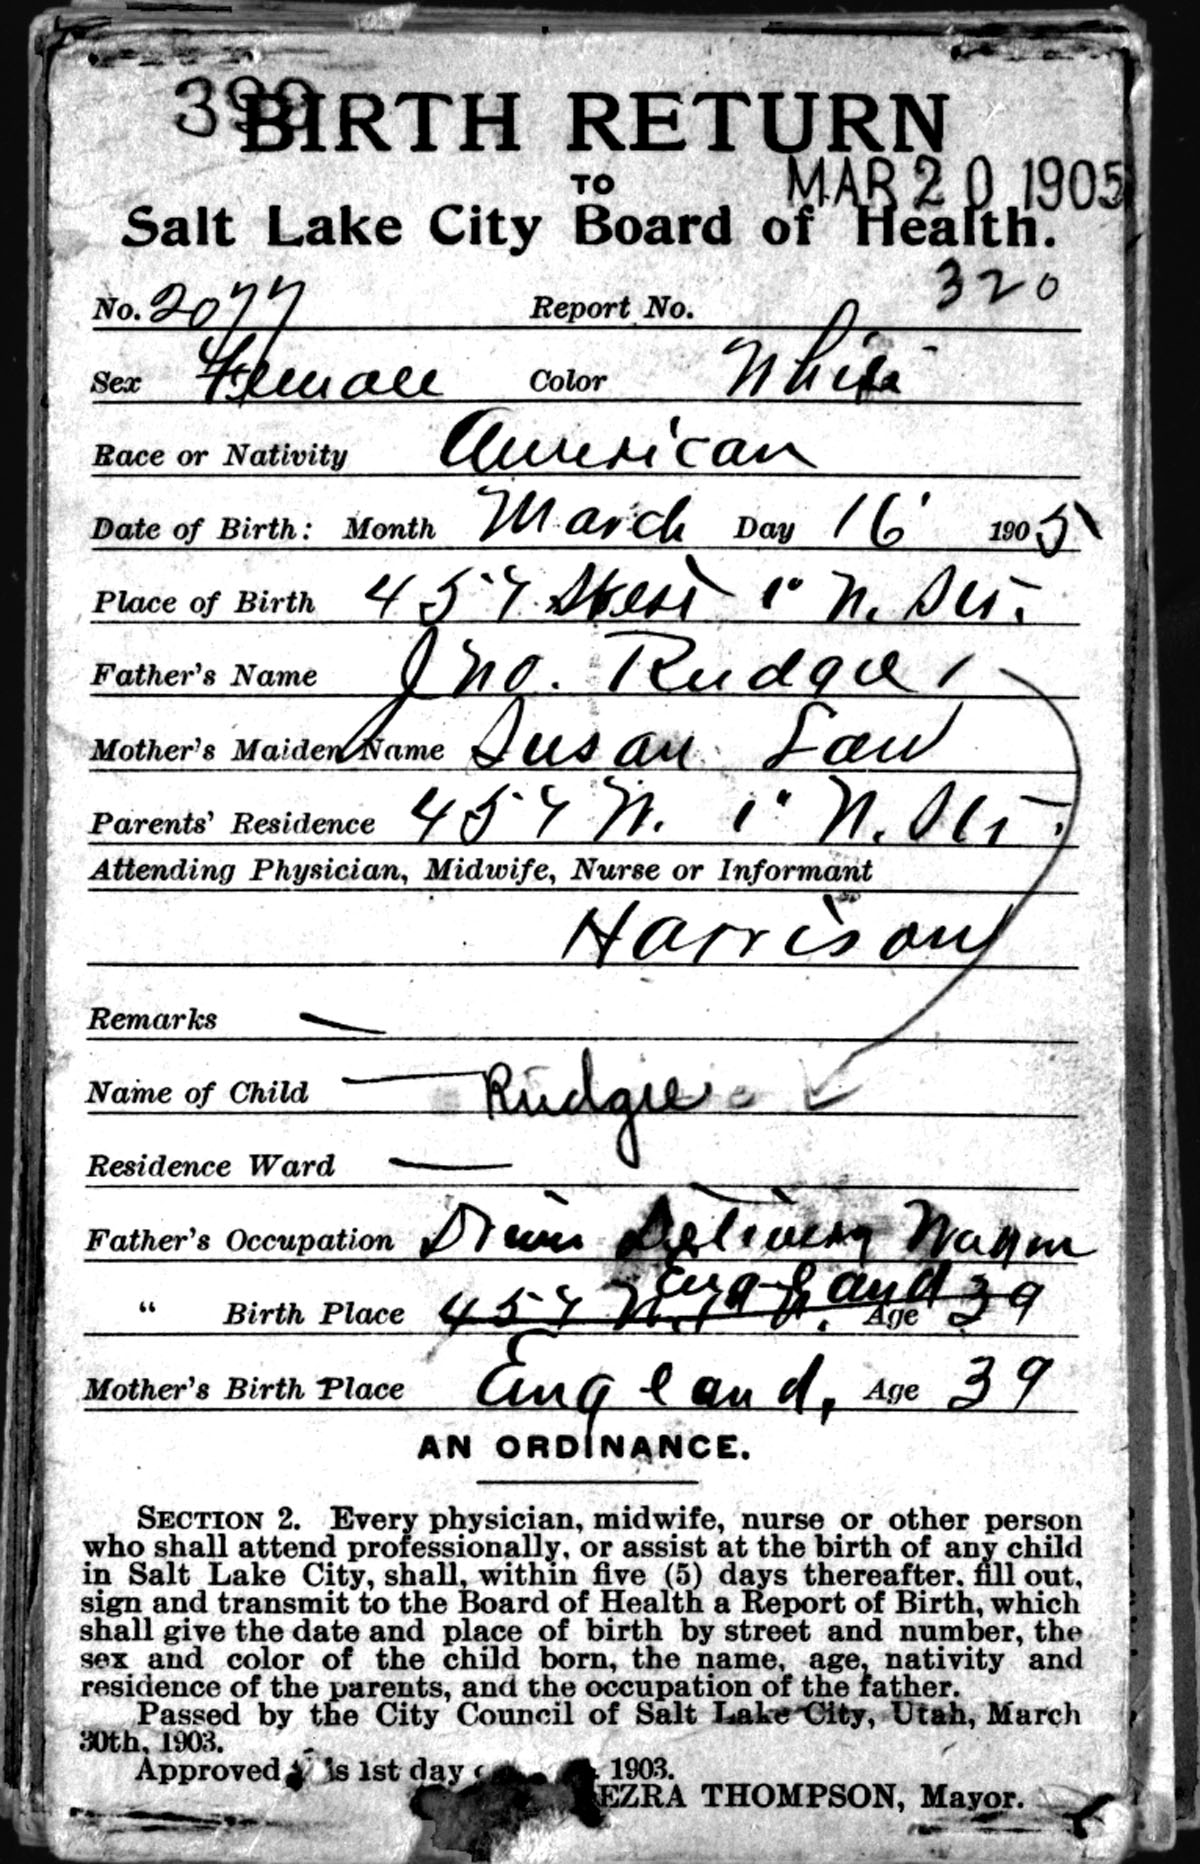 399
BIRTH RETURN
TO
MAR 20 1905
Salt Lake City Board of Health.
320
No. 2077 Report No.
Sex Female Color White
Race or Nativity American
Date of Birth: Month March Day 16 1905
Place of Birth 457 West 1" N. Str.
Father's Name Jno. Rudgie
Mother's Maiden Name Susan Law
Parents' Residence 457 W. 1" N. Str.
Attending Physician, Midwife, Nurse or Informant
Harrison
Remarks —
Name of Child — Rudgie
Residence Ward —
Father's Occupation Drives Delivery Wagon
England
" Birth Place 457 W. 1 N. Age 39
Mother's Birth Place England, Age 39
AN ORDINANCE.
SECTION 2. Every physician, midwife, nurse or other person
who shall attend professionally, or assist at the birth of any child
in Salt Lake City, shall, within five (5) days thereafter, fill out,
sign and transmit to the Board of Health a Report of Birth, which
shall give the date and place of birth by street and number, the
sex and color of the child born, the name, age, nativity and
residence of the parents, and the occupation of the father.
Passed by the City Council of Salt Lake City, Utah, March
30th, 1903.
Approved this 1st day 1903.
EZRA THOMPSON, Mayor.